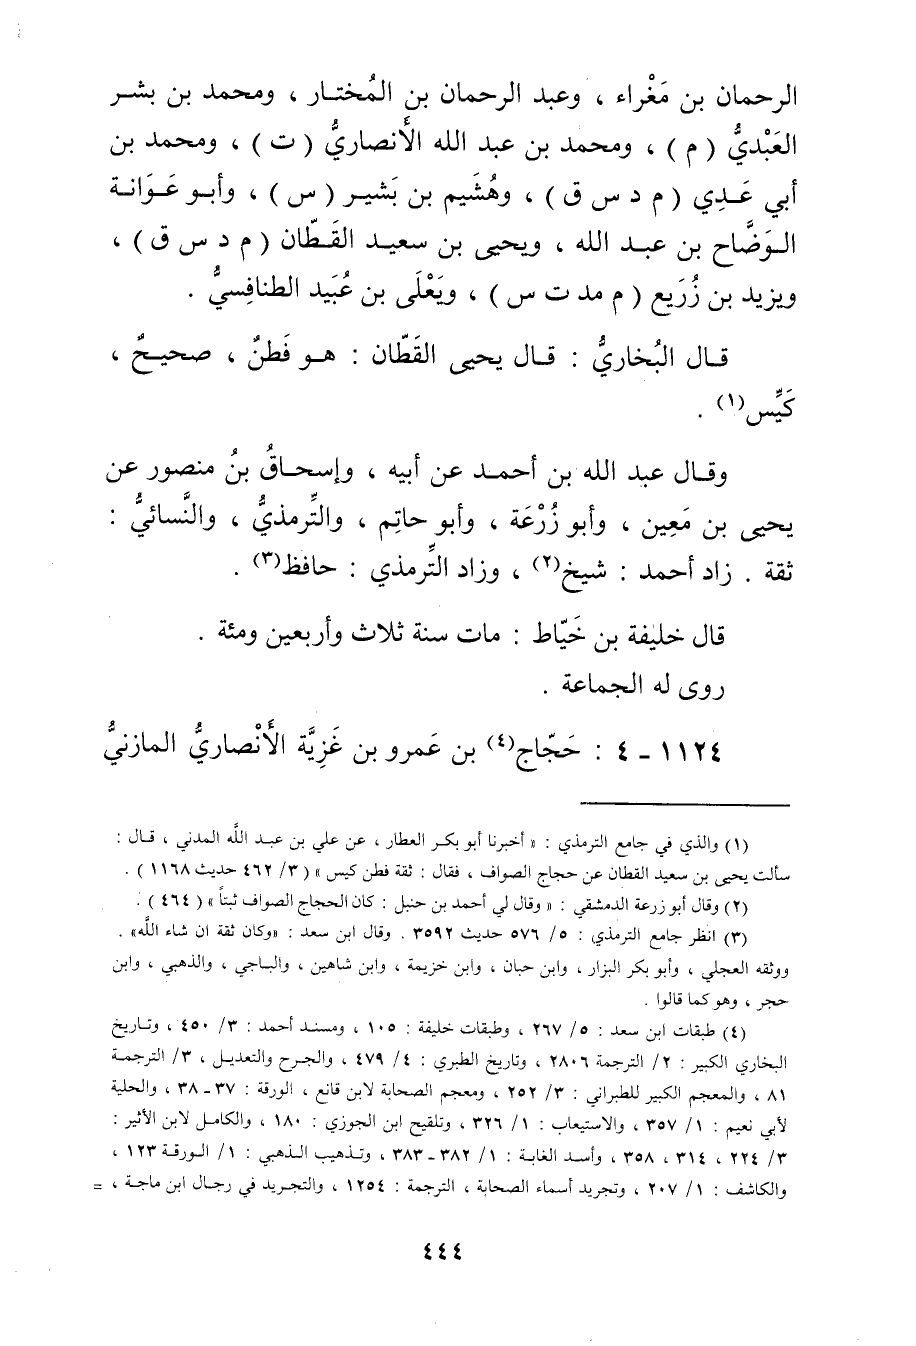 الرحمان بن مَغْراء ، وعبد الرحمان بن المُختـار ، ومحمد بن بشـر
العَبْديُّ ( م ) ، ومحمـد بن عبد الله الأَنصاريُّ ( ت ) ، ومحمـد بن
أبي عَـدِي ( م د س ق ) ، وهُشَيم بن بَشيـر ( س ) ، وأبـو عَـوَانـة
الـوَضَّاح بن عبـد الله ، ويحيى بن سعيـد القَـطَّان ( م د س ق ) ،
ويزيد بن زُرَيع ( م مد ت س ) ، ويَعْلَى بن عُبَيد الطنافِسيُّ .
قـال البُخاريُّ : قـال يحيى القَطَّان : هـو فَطنٌ ، صحيـحٌ ،
كَيِّس(١) .
وقـال عبد الله بن أحمـد عن أبيه ، وإسحـاقُ بنُ منصور عن
يحيى بن مَعِين ، وأبو زُرْعَة ، وأبو حاتِم ، والتِّرمذيُّ ، والنَّسائيُّ :
ثقة . زاد أحمد : شيخ(٢) ، وزاد التِّرمذي : حافظ(٣) .
قال خليفة بن خَيّاط : مات سنة ثلاث وأربعين ومئة .
روى له الجماعة .
١١٢٤ ـ ٤ : حَجّاج(٤) بن عَمرو بن غَزِيَّة الأَنْصاريُّ المازنيُّ
(١) والذي في جامع الترمذي : « أخبرنا أبو بكـر العطار ، عن علي بن عبـد الله المدني ، قـال :
سألت يحيى بن سعيد القطان عن حجاج الصواف ، فقال : ثقة فطن كيس » ( ٣/ ٤٦٢ حديث ١١٦٨ ) .
(٢) وقال أبو زرعة الدمشقي : « وقال لي أحمد بن حنبل : كان الحجاج الصواف ثبتاً » ( ٤٦٤ ) .
(٣) انظر جامع الترمذي : ٥/ ٥٧٦ حديث ٣٥٩٢ . وقال ابن سعد : «وكان ثقة ان شاء الله» .
ووثقه العجلي ، وأبو بكر البزار ، وابن حبان ، وابن خزيمة ، وابن شاهين ، والباجي ، والذهبي ، وابن
حجر ، وهو كما قالوا .
(٤) طبقات ابن سعد : ٥/ ٢٦٧ ، وطبقات خليفة : ١٠٥ ، ومسنـد أحمد : ٣/ ٤٥٠ ، وتـاريخ
البخاري الكبير : ٢/ الترجمة ٢٨٠٦ ، وتاريخ الطبري : ٤/ ٤٧٩ ، والجرح والتعديـل ، ٣/ الترجمـة
٨١ ، والمعجم الكبير للطبراني : ٣/ ٢٥٢ ، ومعجم الصحابة لابن قانع ، الورقة : ٣٧ ـ ٣٨ ، والحلية
لأبي نعيم : ١/ ٣٥٧ ، والاستيعاب : ١/ ٣٢٦ ، وتلقيح ابن الجوزي : ١٨٠ ، والكامـل لابن الأثير :
٣/ ٢٢٤ ، ٣١٤ ، ٣٥٨ ، وأسـد الغابـة : ١/ ٣٨٢ ـ ٣٨٣ ، وتـذهيب الـذهبي : ١/ الـورقـة ١٢٣ ،
والكاشف : ١/ ٢٠٧ ، وتجريد أسماء الصحابة ، الترجمة : ١٢٥٤ ، والتجريـد في رجـال ابن ماجـة ، =
٤٤٤